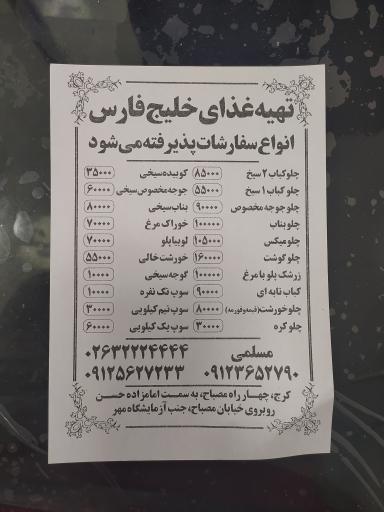 تهیه غذای خلیج فارس
انواع سفارشات پذیرفته می شود
چلو کباب ۲ سیخ ۸۵۰۰۰
چلو کباب ۱ سیخ ۵۵۰۰۰
چلو جوجه مخصوص ۹۰۰۰۰
چلو بناب ۱۰۰۰۰۰
چلو میکس ۱۰۵۰۰۰
چلو گوشت ۱۶۰۰۰۰
زرشک پلو با مرغ ۱۰۰۰۰۰
کباب تابه ای ۹۰۰۰۰
چلو خورشت (قیمه و قورمه) ۸۰۰۰۰
چلو کره ۳۰۰۰۰
کوبیده سیخی ۳۵۰۰۰
جوجه مخصوص سیخی ۶۰۰۰۰
بناب سیخی ۸۰۰۰۰
خوراک مرغ ۷۰۰۰۰
لوبیا پلو ۷۰۰۰۰
خورشت خالی ۵۵۰۰۰
گوجه سیخی ۱۰۰۰۰
سوپ تک نفره ۱۰۰۰۰
سوپ نیم کیلویی ۳۰۰۰۰
سوپ یک کیلویی ۶۰۰۰۰
مسلمی ۰۲۶۳۲۲۲۴۴۴۴
۰۹۱۲۳۶۵۲۷۹۰ ۰۹۱۲۵۶۲۷۲۳۳
کرج، چهار راه مصباح، به سمت امامزاده حسن
روبروی خیابان مصباح، جنب آزمایشگاه مهر